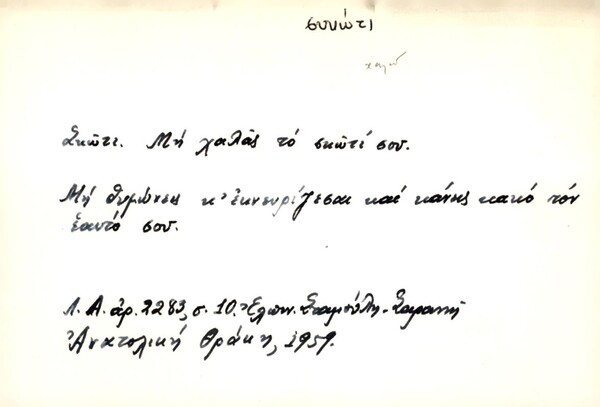 συκώτι
χαλῶ
Σκῶτι. Μή χαλᾶς τό σκῶτί σου.
Μή θυμώνεις κ' ἐκνευρίζεσαι καί κάνης κακό τόν
ἑαυτό σου.
Λ. Α. ἀρ. 2283, σ. 10, Ἐλπιν. Σταμούλη-Σαραντῆ
Ἀνατολική Θράκη, 1959.